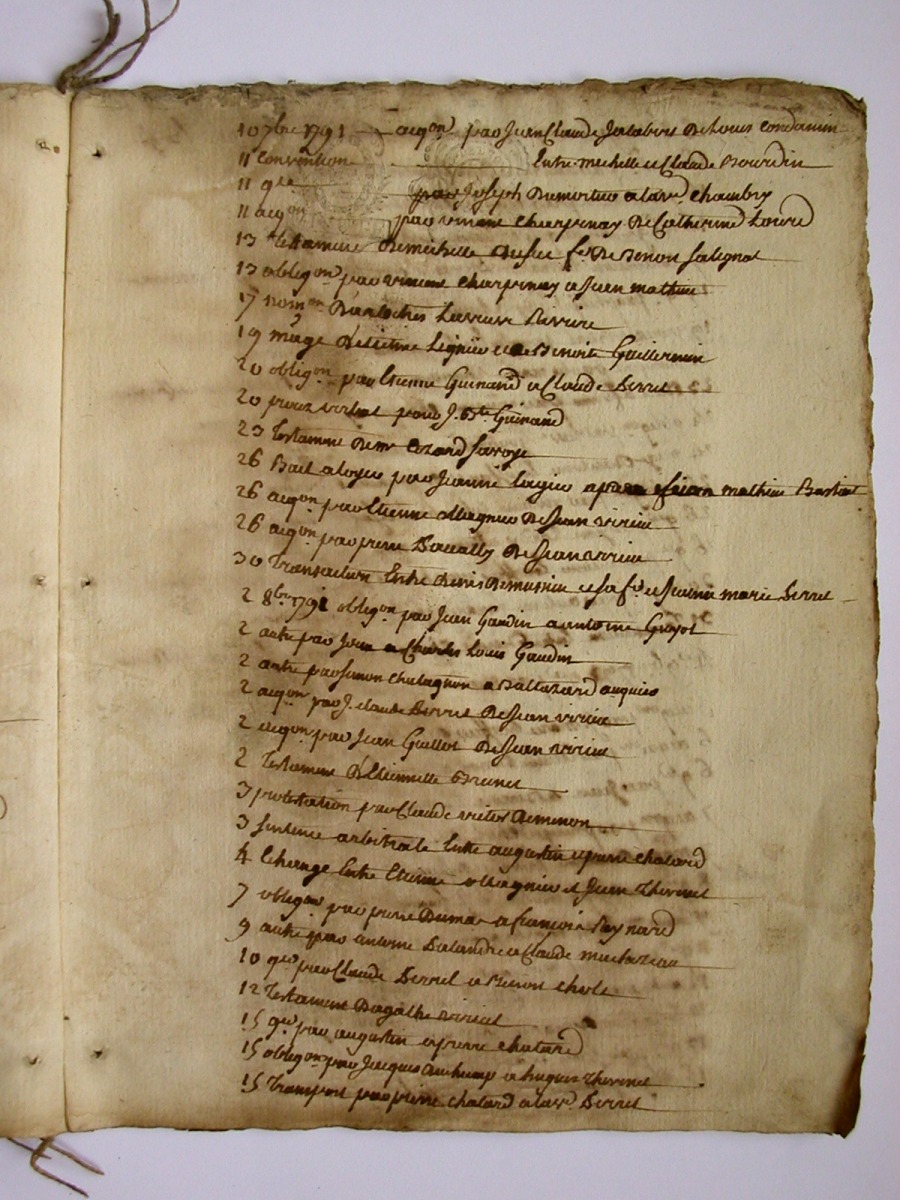 10 7bre 1791 acqon par Jean Claude Jalabert De Louis Condamin
11 Convention Entre michelle et Claude Bourdin
11 qce par Joseph Dumortier a la ve Chambry
11 acqon par vincent Charpenay De Catherine
13 testament De michelle fe De Benoit Salignat
13 obligon par vincent Charpenay a Jean mathieu
17 nomon D'arbitres Perrier
19 mage D'Etienne et De Benoite Guillermin
20 obligon par Etienne Guinand a Claude Perret
20 procez verbal pour J. Bte Guinand
23 Testament De mr Cezard Savoye
26 Bail a loyer par Jeanne a mathieu
26 acqon par Etienne allagnier De Jean
26 acqon par pierre De Jean
30 Transaction Entre Denis et sa fe et Jeanne marie Perret
2 8bre 1791 obligon par Jean Gaudin a antoine Guyot
2 autre par Jean a Charles Louis Gaudin
2 autre par simon Chatagnon a Baltazard
2 acqon par J. claude Perret De Jean
2 acqon par Jean Guillot De Jean
2 Testament D'Etiennette Brunet
3 protestation par Claude victor
3 sentence arbitrale Entre augustin et pierre chatard
4 Echange Entre Etienne allagnier et Jean Thevenet
7 obligon par pierre Dumas a françois Raynard
9 autre par antoine a Claude
10 qce par Claude Perret a Benoit
12 Testament D'agathe
15 qce par augustin a pierre chatard
15 obligon par Jacques a hugues Thevenet
15 Transport par pierre chatard a la ve Perret